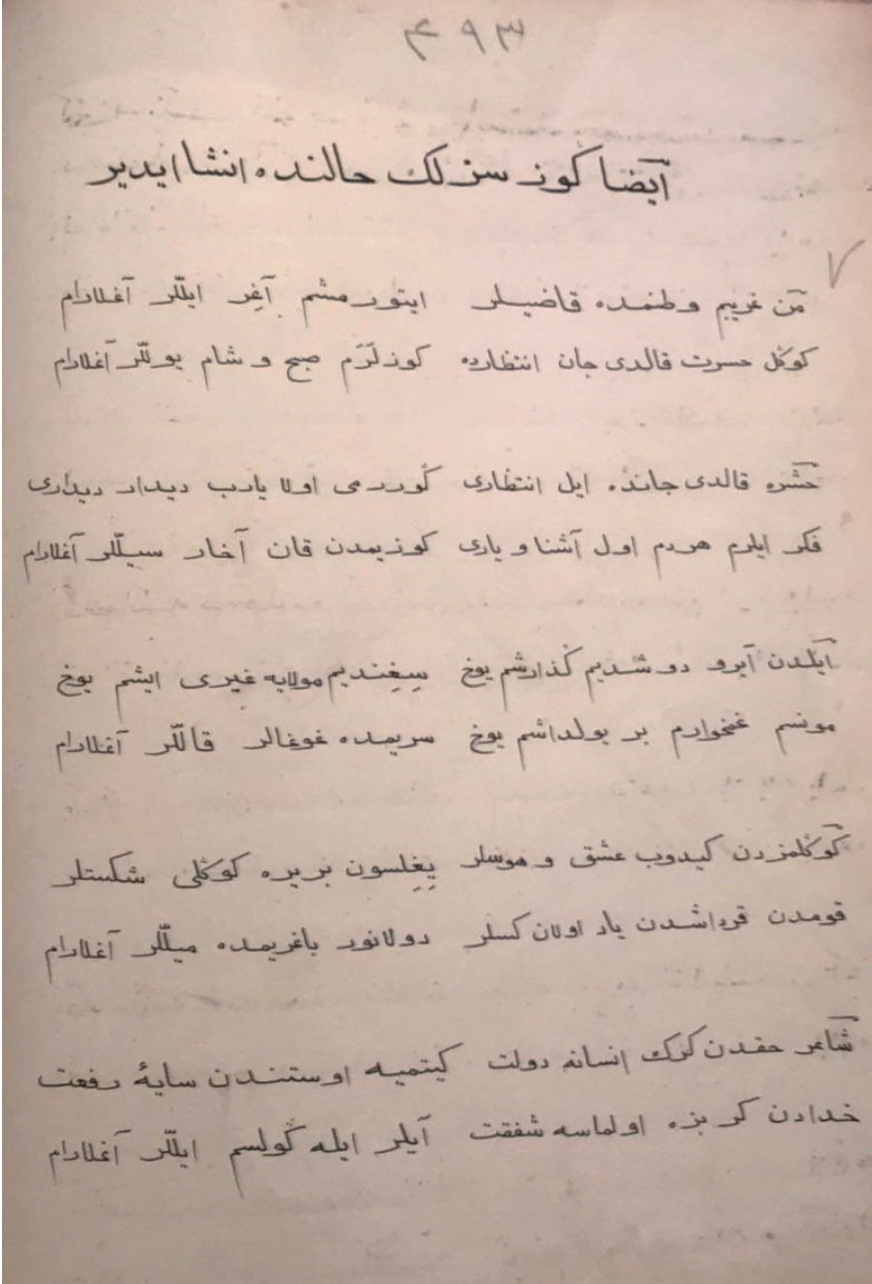 ۴۹۳
آیضا کوز سزلک حالنده انشا ایدیر
۷
من غریبم وطنمده قاضیلر ایتورمشم آغر ایللر آغلارام
کوکل حسرت قالدی جان انتظارده کوزلرم صبح و شام یوللر آغلارام
حشره قالدی جانده ایل انتظاری کوررمی اولا یارب دیدار دیداری
فکر ایلرم هردم اول آشنا و یاری کوزیمدن قان آخار سیللر آغلارام
آیلدن آیرو دوشدیم گذارشم یوخ سغندیم مولایه غیری ایشم یوخ
مونسم غمخوارم بر یولداشم یوخ سریمده غوغالر قاللر آغلارام
کوکلمزدن کیدوب عشق و هوسلر یغلسون بریره کوکلی شکستلر
قومدن قرداشدن یاد اولان کسلر دولانور باغریمده میللر آغلارام
شاعر حقدن کرک انسانه دولت کیتمیه اوستندن سایهٔ رفعت
خدادن کر بزه اولماسه شفقت آیلر ایله کولسم ایللر آغلارام